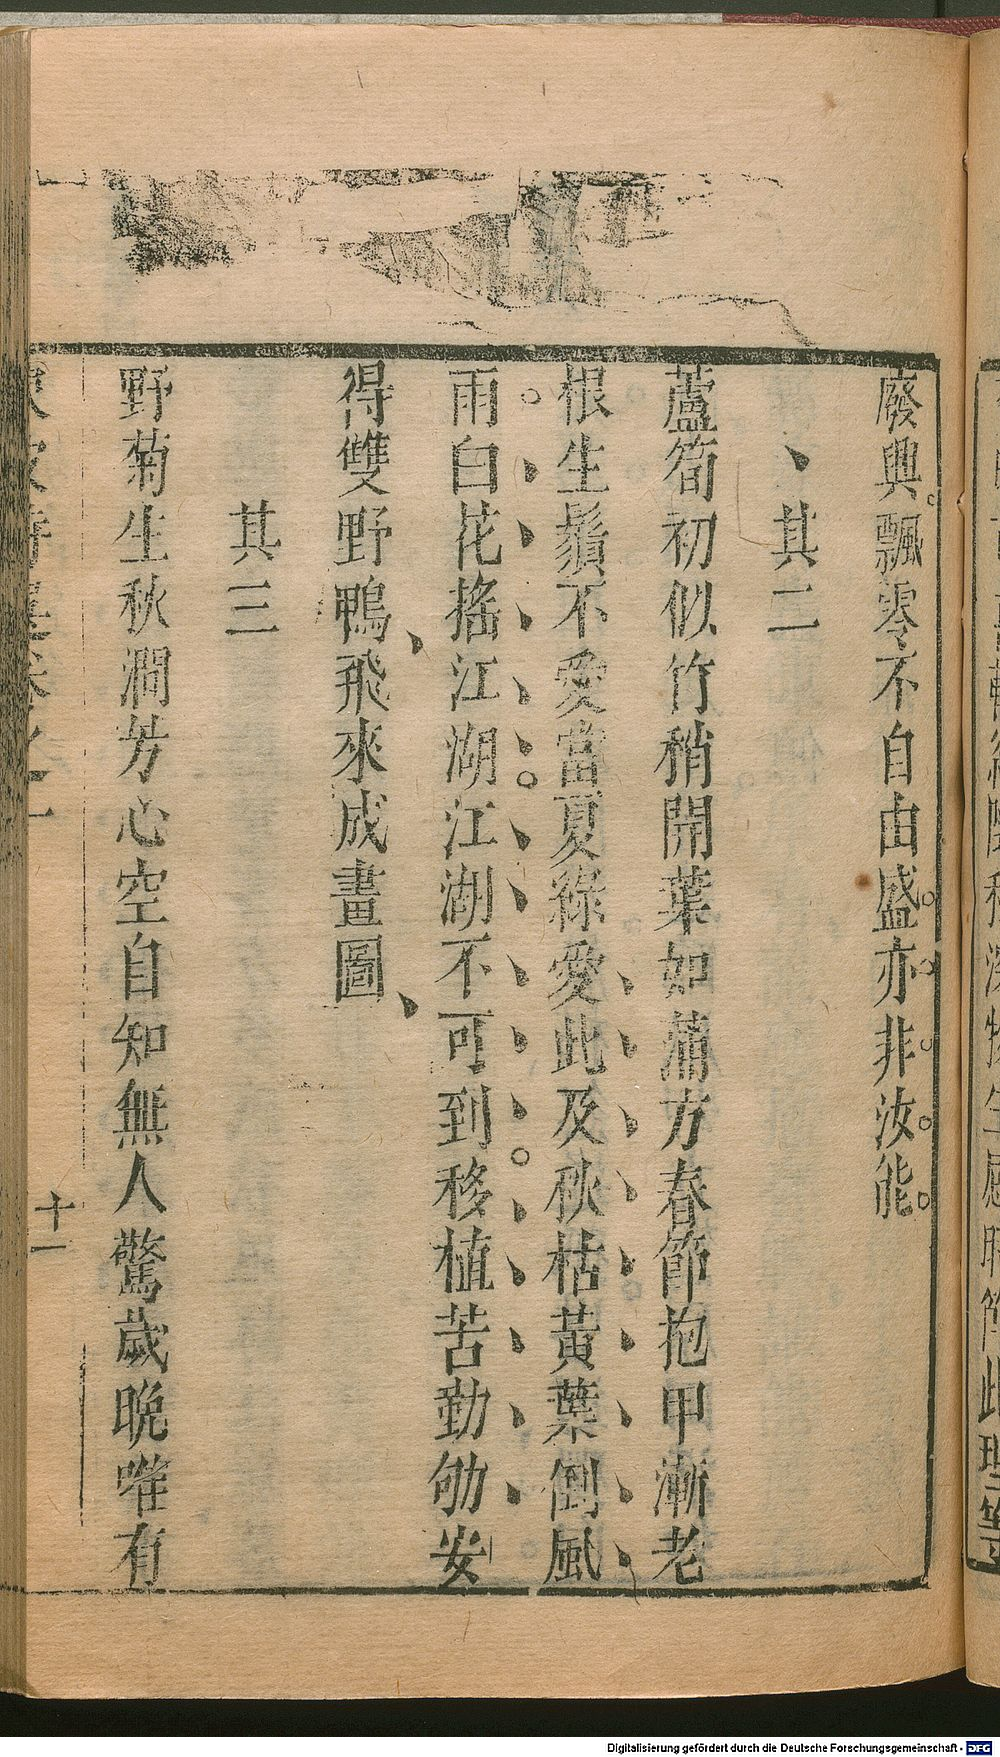 廢興飄零不自由盛亦非汝能
其二
蘆筍初似竹稍開葉如蒲方春節抱甲漸老
根生鬚不愛當夏綠愛此及秋枯黃葉倒風
雨白花搖江湖江湖不可到移植苦勤劬安
得雙野鴨飛來成畫圖
其三
野菊生秋澗芳心空自知無人驚歲晚唯有
十一
Digitalisierung gefördert durch die Deutsche Forschungsgemeinschaft - DFG